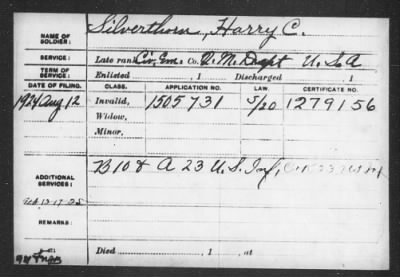 NAME OF SOLDIER: Silverthorn, Harry C.
SERVICE: Late rank Civ. Em. Co. Q. M. Dept U. S. A
TERM OF SERVICE: Enlisted , 1 Discharged , 1
DATE OF FILING. CLASS. APPLICATION NO. LAW. CERTIFICATE NO.
1924 Aug. 12 Invalid, 1505731 5/20 1279156
Widow,
Minor,
ADDITIONAL SERVICES: B 10 & A 23 U. S. Inf,
REMARKS:
Died , 1 , at